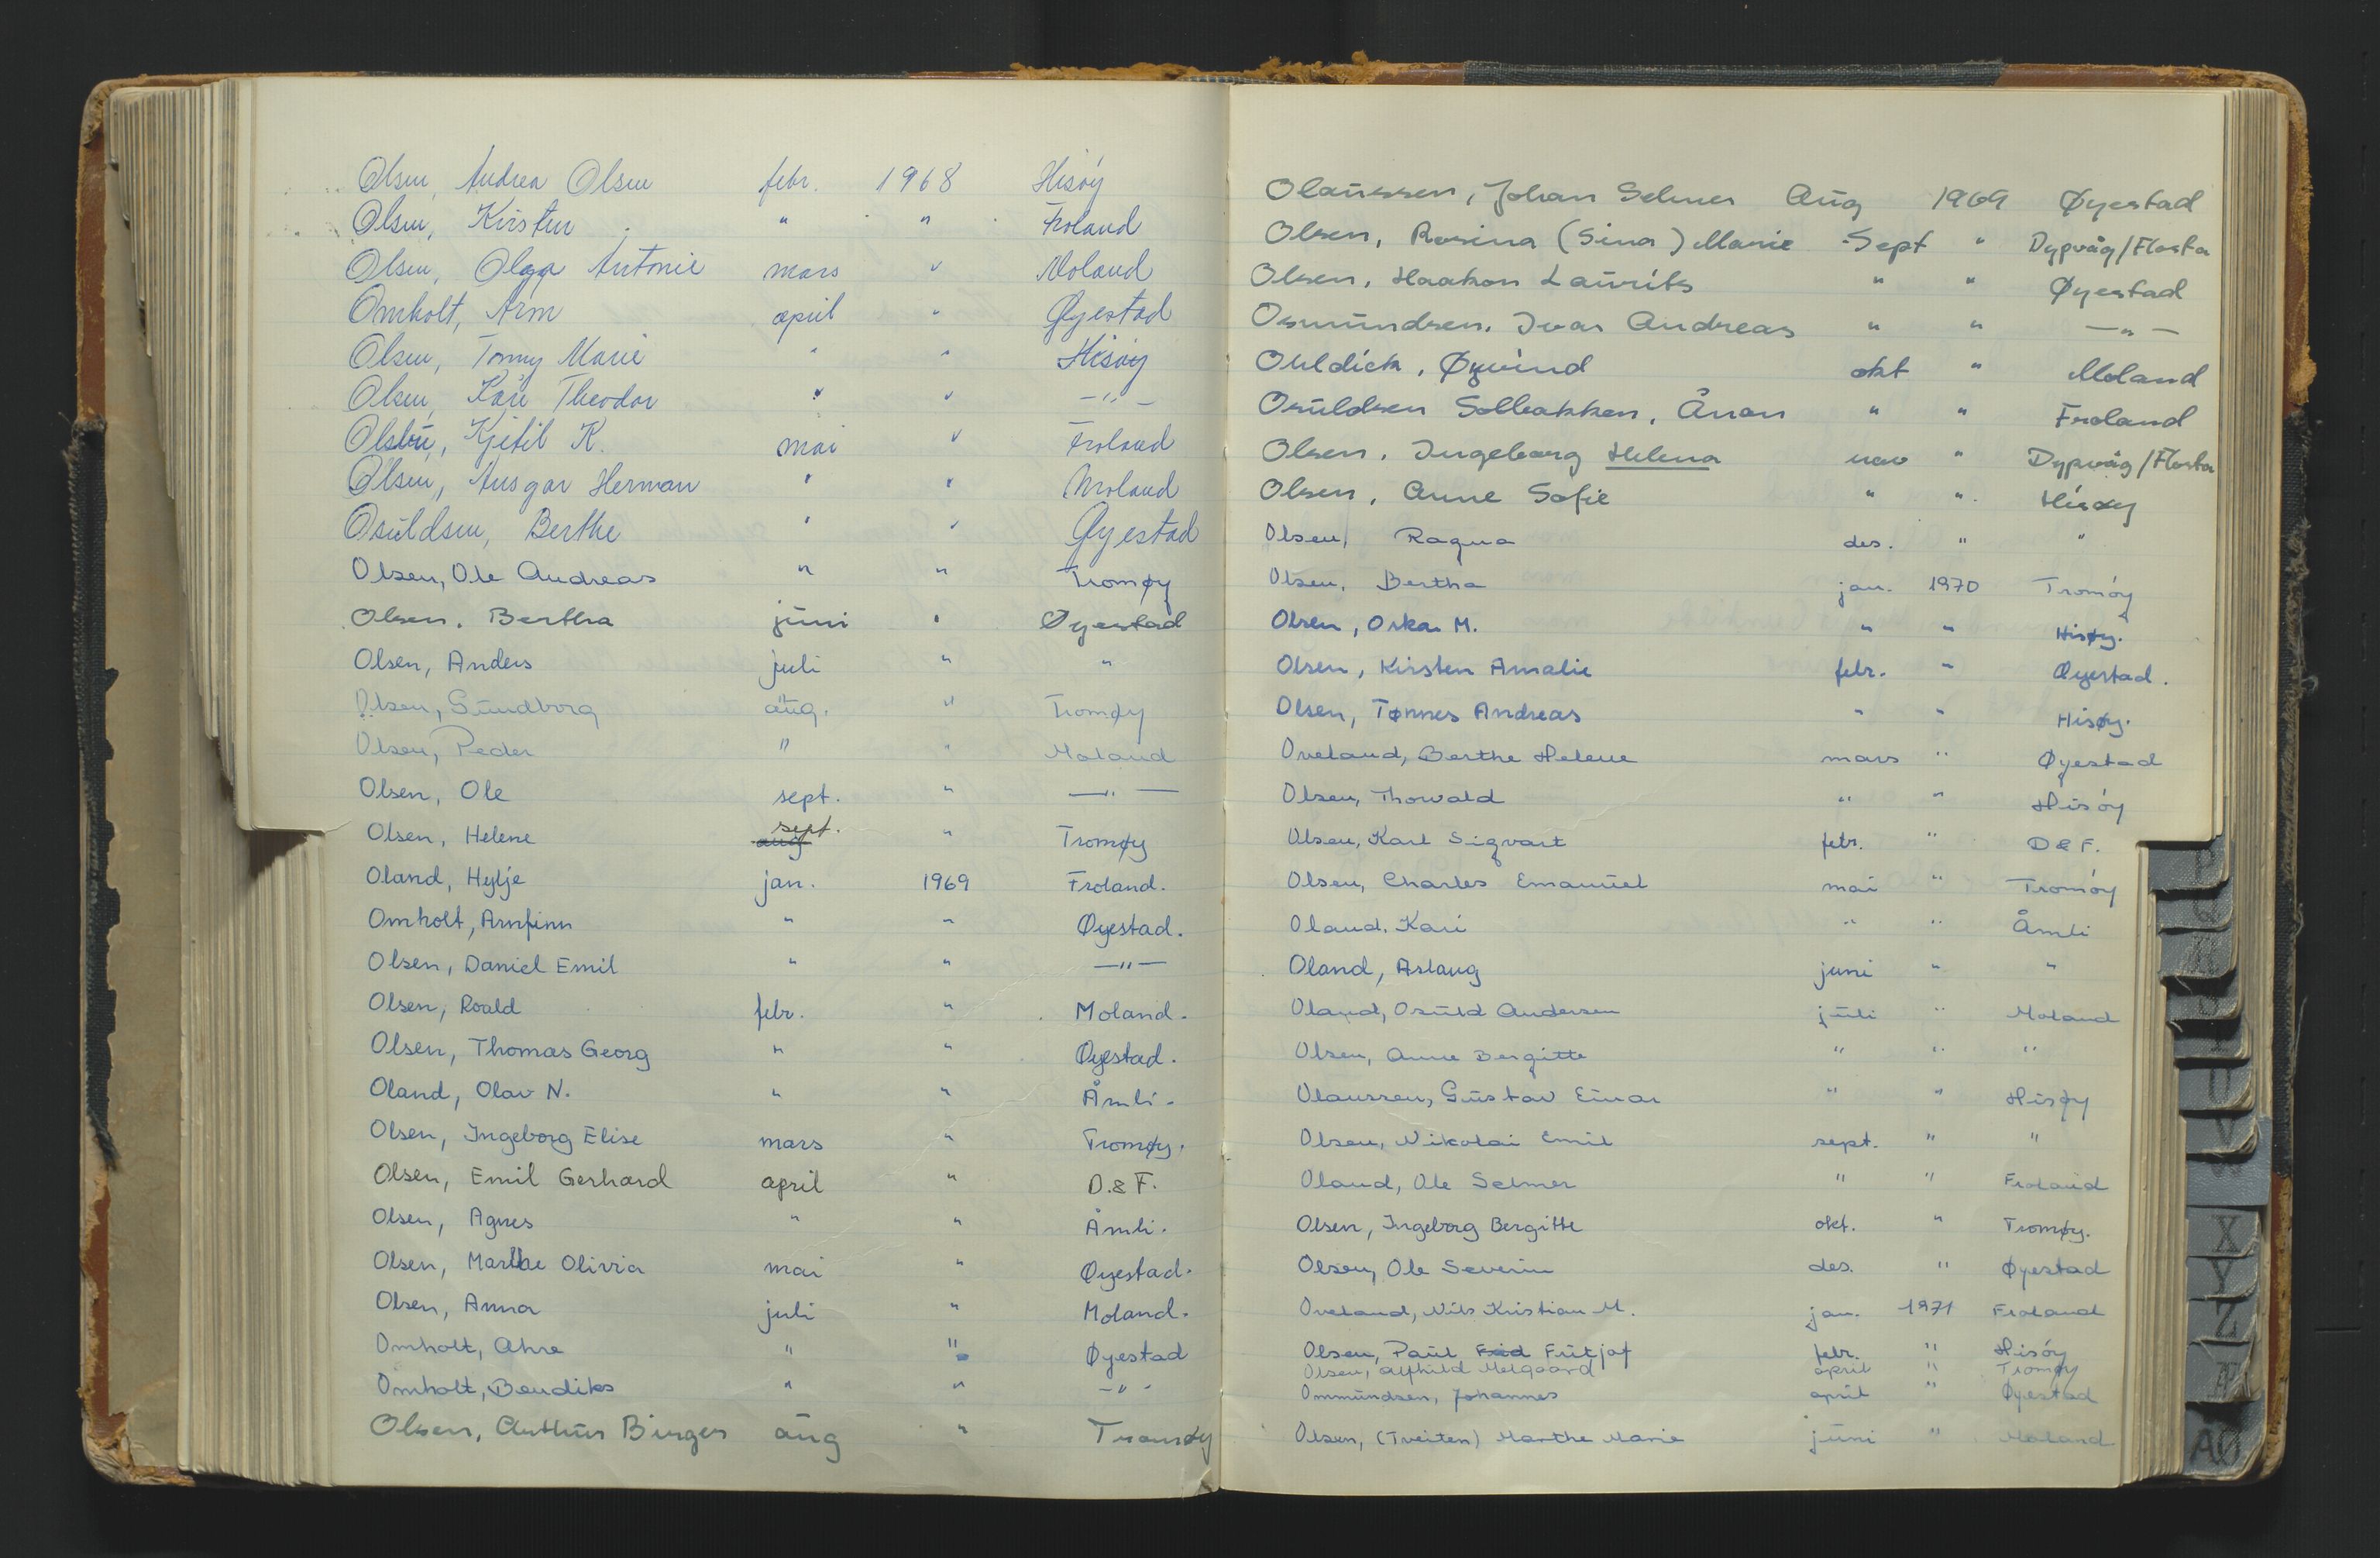 Olsen, Andrea Olsen febr. 1968 Hisøy
Olsen, Kirsten " " Froland
Olsen, Olga Antonie mars " Moland
Omholt, Arm april " Øyestad
Olsen, Tonny Marie " " Hisøy
Olsen, Kåre Theodor " " —"—
Olsbu, Kjetil K. mai " Froland
Olsen, Ansgar Herman " " Moland
Osuldsen, Berthe " " Øyestad
Olsen, Ole Andreas " " Tromøy
Olsen, Bertha juni " Øyestad
Olsen, Anders juli " "
Olsen, Gundborg aug. " Tromøy
Olsen, Peder " " Moland
Olsen, Ole sept. " —"—
Olsen, Helene aug sept. " Tromøy
Oland, Hylje jan. 1969 Froland.
Omholt, Arnfinn " " Øyestad.
Olsen, Daniel Emil " " —"—
Olsen, Roald febr. " Moland.
Olsen, Thomas Georg " " Øyestad.
Oland, Olav N. " " Åmli.
Olsen, Ingeborg Elise mars " Tromøy.
Olsen, Emil Gerhard april " D.&F.
Olsen, Agnes " " Åmli.
Olsen, Marthe Olivia mai " Øyestad.
Olsen, Anna juli " Moland.
Omholt, " " Øyestad
Omholt, Bendiks " " —"—
Olsen, Arthur Birger aug " Tromøy
Olaussen, Johan Selmer Aug 1969 Øyestad
Olsen, Rosina (Sina) Marie Sept " Dypvåg/Flosta
Olsen, Haakon Laurits " " Øyestad
Osmundsen, Ivar Andreas " " —"—
Ouldick, Øyvind okt " Moland
Osuldsen Solbakken, Ånon " " Froland
Olsen, Ingeborg Helena nov " Dypvåg/Flosta
Olsen, Anne Sofie " " Hisøy
Olsen, Ragna des. " "
Olsen, Bertha jan. 1970 Tromøy
Olsen, Oskar M. " " Hisøy.
Olsen, Kirsten Amalie febr. " Øyestad.
Olsen, Tønnes Andreas " " Hisøy.
Oveland, Berthe Helene mars " Øyestad
Olsen, Thorvald " " Hisøy
Olsen, Karl Sigvart febr. " D&F.
Olsen, Charles Emanuel mai " Tromøy
Oland, Kari " " Åmli
Oland, Aslaug juni " "
Oland, Osuld Andersen juli " Moland
Olsen, Anne Bergitte " " "
Olaussen, Gustav Einar " " Hisøy
Olsen, Nikolai Emil sept. " "
Oland, Ole Selmer " " Froland
Olsen, Ingeborg Bergitte okt. " Tromøy.
Olsen, Ole Severin des. " Øyestad
Oveland, Nils Kristian M. jan. 1971 Froland
Olsen, Paul Fritjof febr. " Hisøy
Olsen, Alfhild Melgaard april " Tromøy
Ommundsen, Johannes april " Øyestad
Olsen, (Tveiten) Marthe Marie juni " Moland
P
U
V
X
Y
Z
Æ
AØ